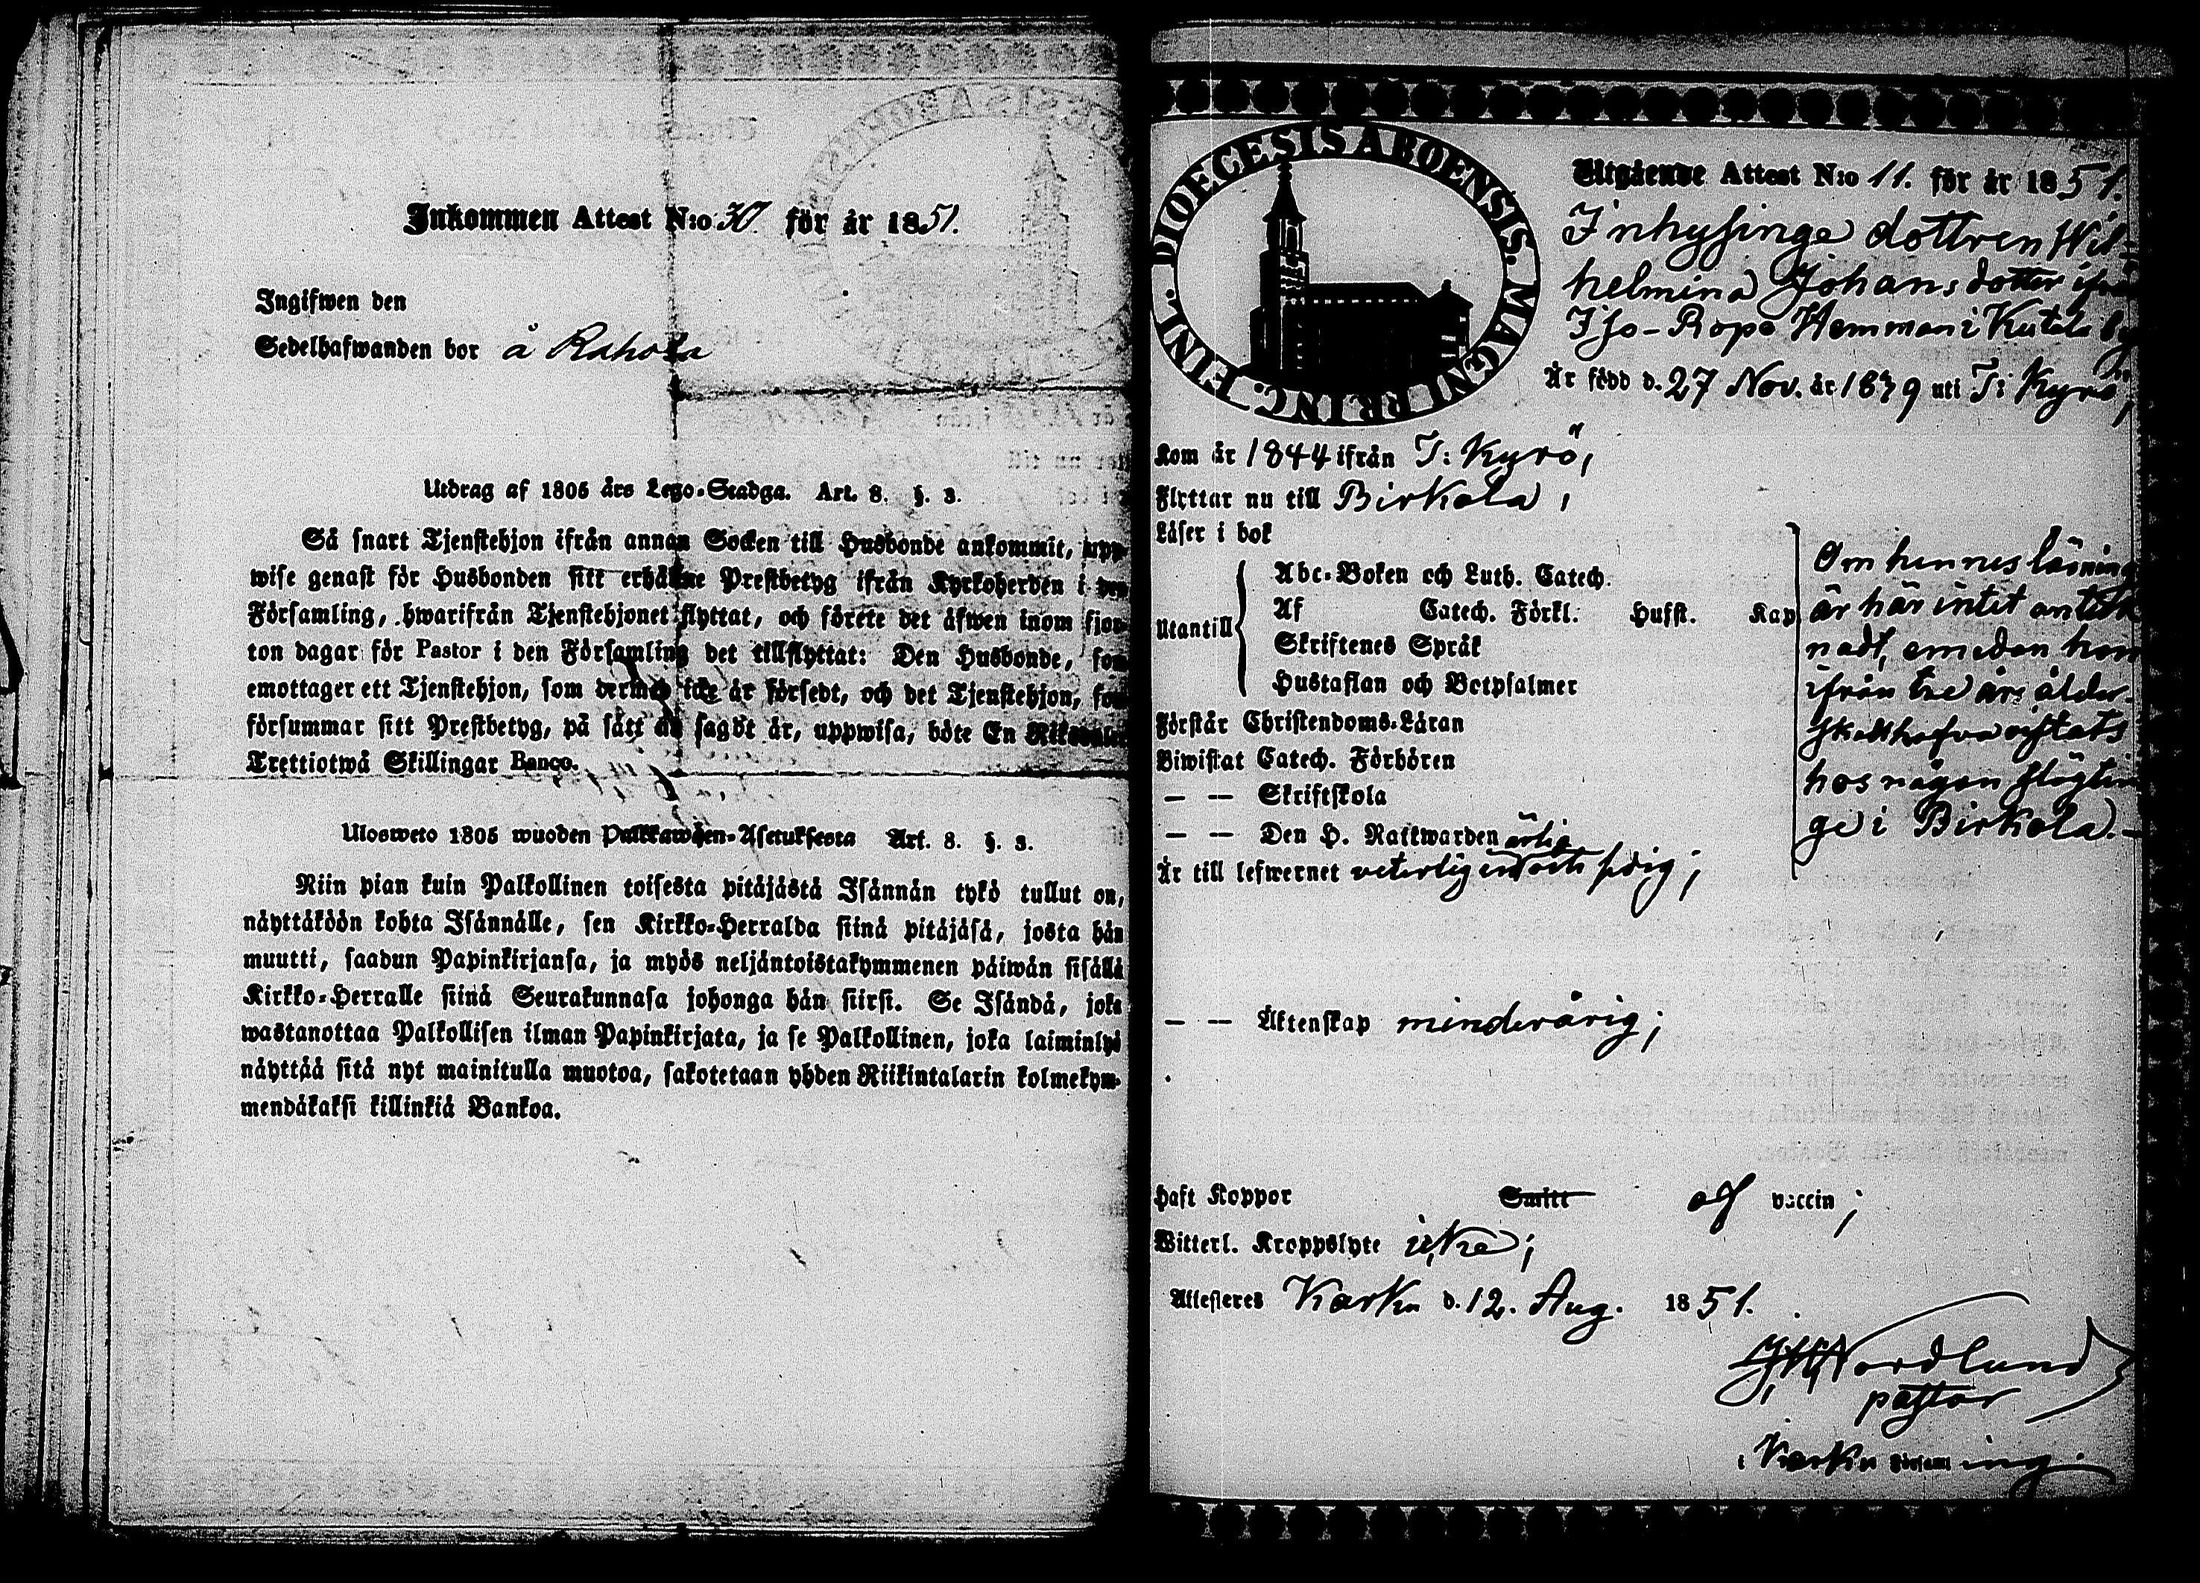 Inkommen Attest N:o 30. för år 1851.
Ingifwen den
Sedelhafwanden bor å Rahola
Utdrag af 1805 års Lego-Stadga. Art. 8. §. 3.
Så snart Tjenstehjon ifrån annan Socken till Husbonde ankommit, upp-
wise genast för Husbonden sitt erhållne Prestbetyg ifrån Kyrkoherden i den
Församling, hwarifrån Tjenstehjonet flyttat, och förete det äfwen inom fjor-
ton dagar för Pastor i den Församling det tillflyttat: Den Husbonde, som
emottager ett Tjenstehjon, som dermed icke är försedt, och det Tjenstehjon, som
försummar sitt Prestbetyg, på sätt nu sagdt är, uppwisa, böte En Riksdaler
Trettiotwå Skillingar Banco.
Ulosweto 1805 wuoden Palkkawäen-Asetuksesta Art. 8. §. 3.
Niin pian kuin Palkollinen toisesta pitäjästä Isännän tykö tullut on,
näyttäköön kohta Isännälle, sen Kirkko-Herralda siinä pitäjäsä, josta hän
muutti, saadun Papinkirjansa, ja myös neljäntoistakymmenen päiwän sisällä
Kirkko-Herralle siinä Seurakunnasa johonga hän siirsi. Se Isändä, joka
wastanottaa Palkollisen ilman Papinkirjata, ja se Palkollinen, joka laiminlyö
näyttää sitä nyt mainitulla muotoa, sakotetaan yhden Riikintalarin kolmekym-
mendäkaksi killinkiä Bankoa.
DIOECESIS ABOENSIS. MAGNI PRINC. FINL.
Utgående Attest N:o 11. för år 1851.
Inhysinge dottren Wil-
helmina Johansdotter ifrån
Iso-Ropo Hemman i Kutala by
Är född d. 27 Nov. år 1839 uti T: Kyrö;
Kom år 1844 ifrån T: Kyrö,
Flyttar nu till Birkala,
Läser i bok
Utantill
Abc-Boken och Luth. Catech.
Af Catech. Förkl. Hufst. Kap.
Skriftenes Språk
Hustaflan och Botpsalmer
Om hennes läsning
är här intet anteck
nadt, emedan hon
ifrån tre års ålder
skall hafva vistats
hos någon slägtin
ge i Birkala.
Förstår Christendoms-Läran
Biwistat Catech. Förhören
— — Skriftskola
— — Den H. Nattwarden
Är till lefwernet veterligen ärlig och frejdig;
— — Äktenskap minderårig;
Haft Koppor Smitt af vaccin;
Witterl. Kroppslyte icke;
Attesteras Karku d. 12. Aug. 1851.
Nordlund
pastor
i Karku Församling.